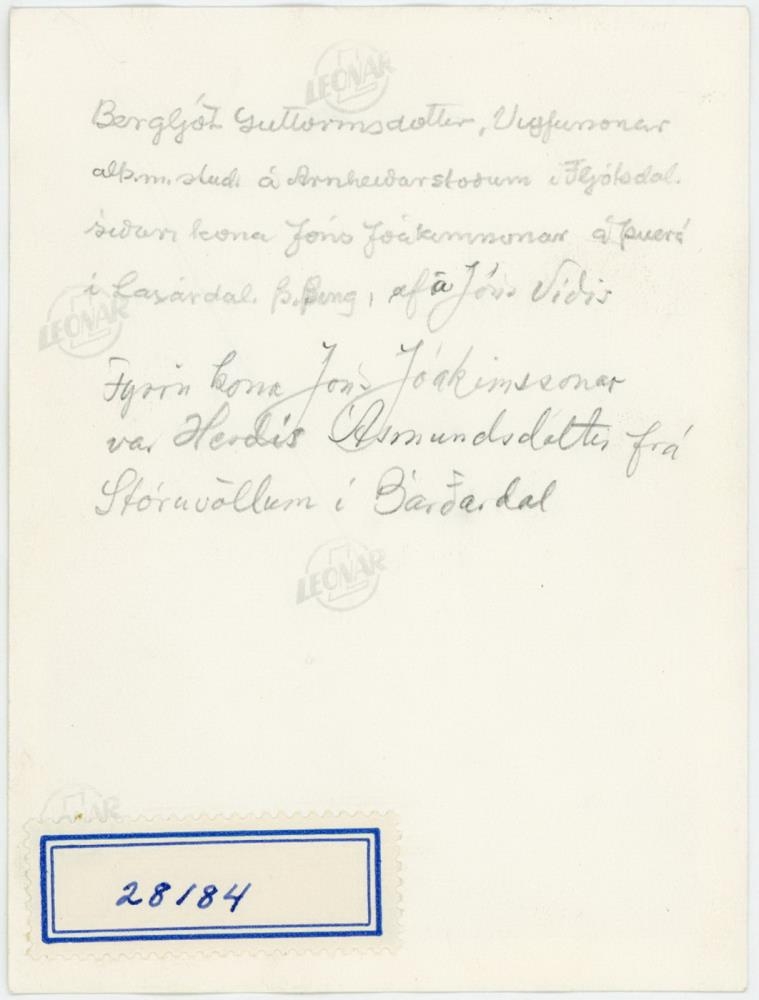 LEONAR
Bergljót Guttormsdóttir, Vigfussonar
alþ.m. stud. á Arnheiðarstoðum i Fljótsdal.
síðari kona Jóns Jóakimssonar á Þverá
i Laxárdal. S. Þing, afa Jóns Víðis
LEONAR
Fyrri kona Jóns Jóakimssonar
var Herdís Ásmundsdóttir frá
Stóruvöllum í Bárðardal
LEONAR
28184